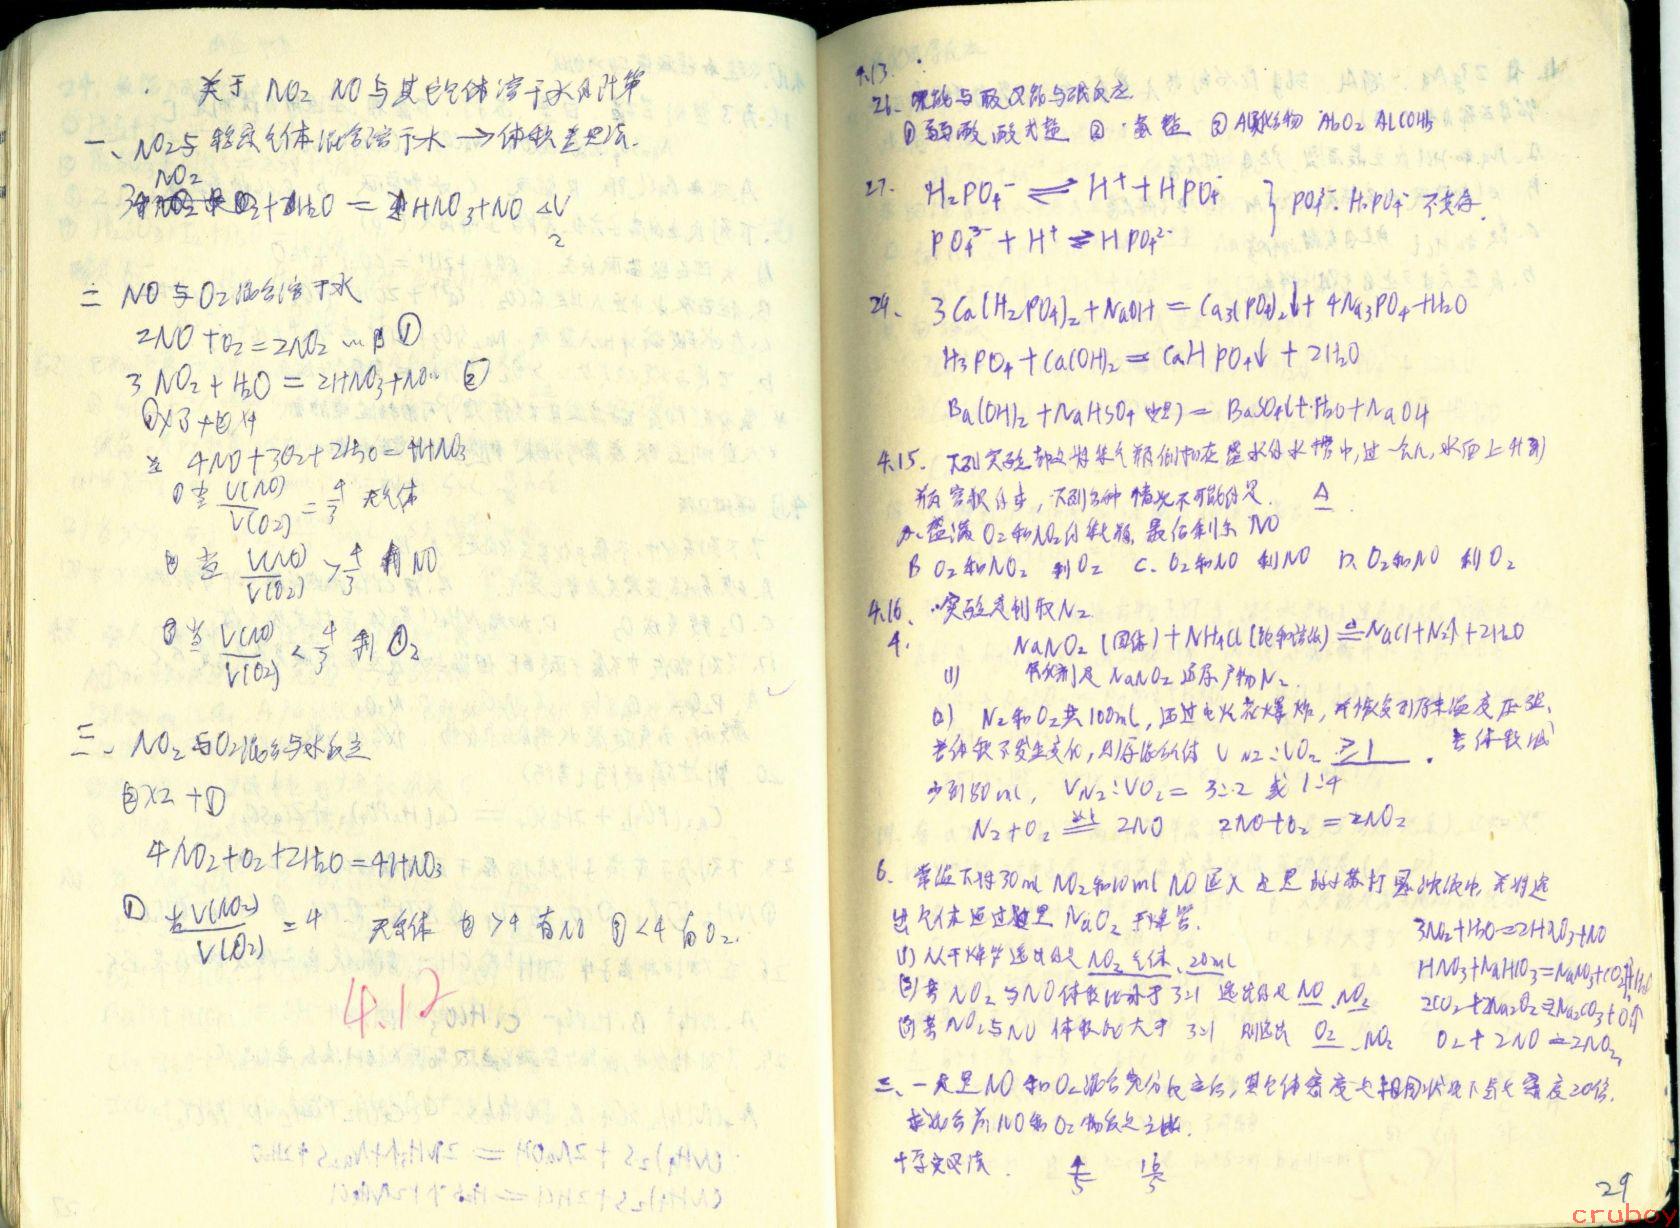 关于 NO2 NO 与其它气体溶于水的计算
一、NO2与 气体混合溶于水 → 体积差
NO2
3 + H2O = 2HNO3 + NO △V
2
二 NO与O2混合溶于水
2NO + O2 = 2NO2 ①
3NO2 + H2O = 2HNO3 + NO ②
①×3 + ②×
4NO + 3O2 + 2H2O = 4HNO3
①当 V(NO)/V(O2) = 4/3 无气体
②当 V(NO)/V(O2) > 4/3 剩NO
③当 V(NO)/V(O2) < 4/3 剩O2
三、NO2与O2混合与水反应
②×2 + ①
4NO2 + O2 + 2H2O = 4HNO3
① 当 V(NO2)/V(O2) = 4 无气体 ② >4 有NO ③ <4 有O2.
4.12
4.13.
26. 既能与酸又能与碱反应.
① 弱酸酸式盐 ② 氨盐 ③
27. H2PO4- ⇌ H+ + HPO4
PO4 3- + H+ ⇌ HPO4 2-
} PO4 3- . H2PO4- 不共存.
29. 3Ca(H2PO4)2 + NaOH = Ca3(PO4)2↓ + 4Na3PO4 + H2O
H3PO4 + Ca(OH)2 = CaHPO4↓ + 2H2O
Ba(OH)2 + NaHSO4 = BaSO4↓ + H2O + NaOH
4.15. 下列实验都要将集气瓶倒扣在盛水的水槽中, 过一会儿, 水面上升到
瓶容积的 , 下列各种情况不可能的是. A
A. 盛满O2和NO2的 瓶, 最后剩余NO
B O2和NO2 剩O2 C. O2和NO 剩NO D. O2和NO 剩O2
4.16. 实验是制取N2.
4. NaNO2(固体) + NH4Cl(饱和溶液) =△ NaCl + N2↑ + 2H2O
(1) 氧化剂是NaNO2 还原产物N2.
(2) N2和O2共100ml, 通过电火花 , 并恢复到原来温度压强,
若体积不发生变化, 则原混合气体 V N2 : VO2 ≥1 . 若体积减
少到80ml, VN2 : VO2 = 3:2 或 1:4
N2 + O2 = 2NO 2NO + O2 = 2NO2
6. 常温下将30ml NO2和10ml NO通入足量的小苏打 溶液中, 并将逸
出气体通过足量 Na2O2 干燥管.
(1) 从干燥管逸出的是 NO2气体, 20ml
(2) 若NO2与NO体积比小于 3:1 逸出的是 NO .NO2
(3) 若NO2与NO体积比大于 3:1 则逸出 O2 . NO2
3NO2 + H2O = 2HNO3 + NO
HNO3 + NaHCO3 = NaNO3 + CO2↑ + H2O
2CO2 + 2Na2O2 = 2Na2CO3 + O2↑
O2 + 2NO = 2NO2
三、一定量NO和O2混合充分反应后, 其气体密度是相同状况下氢气密度20倍.
求混合前NO和O2物质量之比.
十字交叉法. 4/5 16/5
29
cruboy